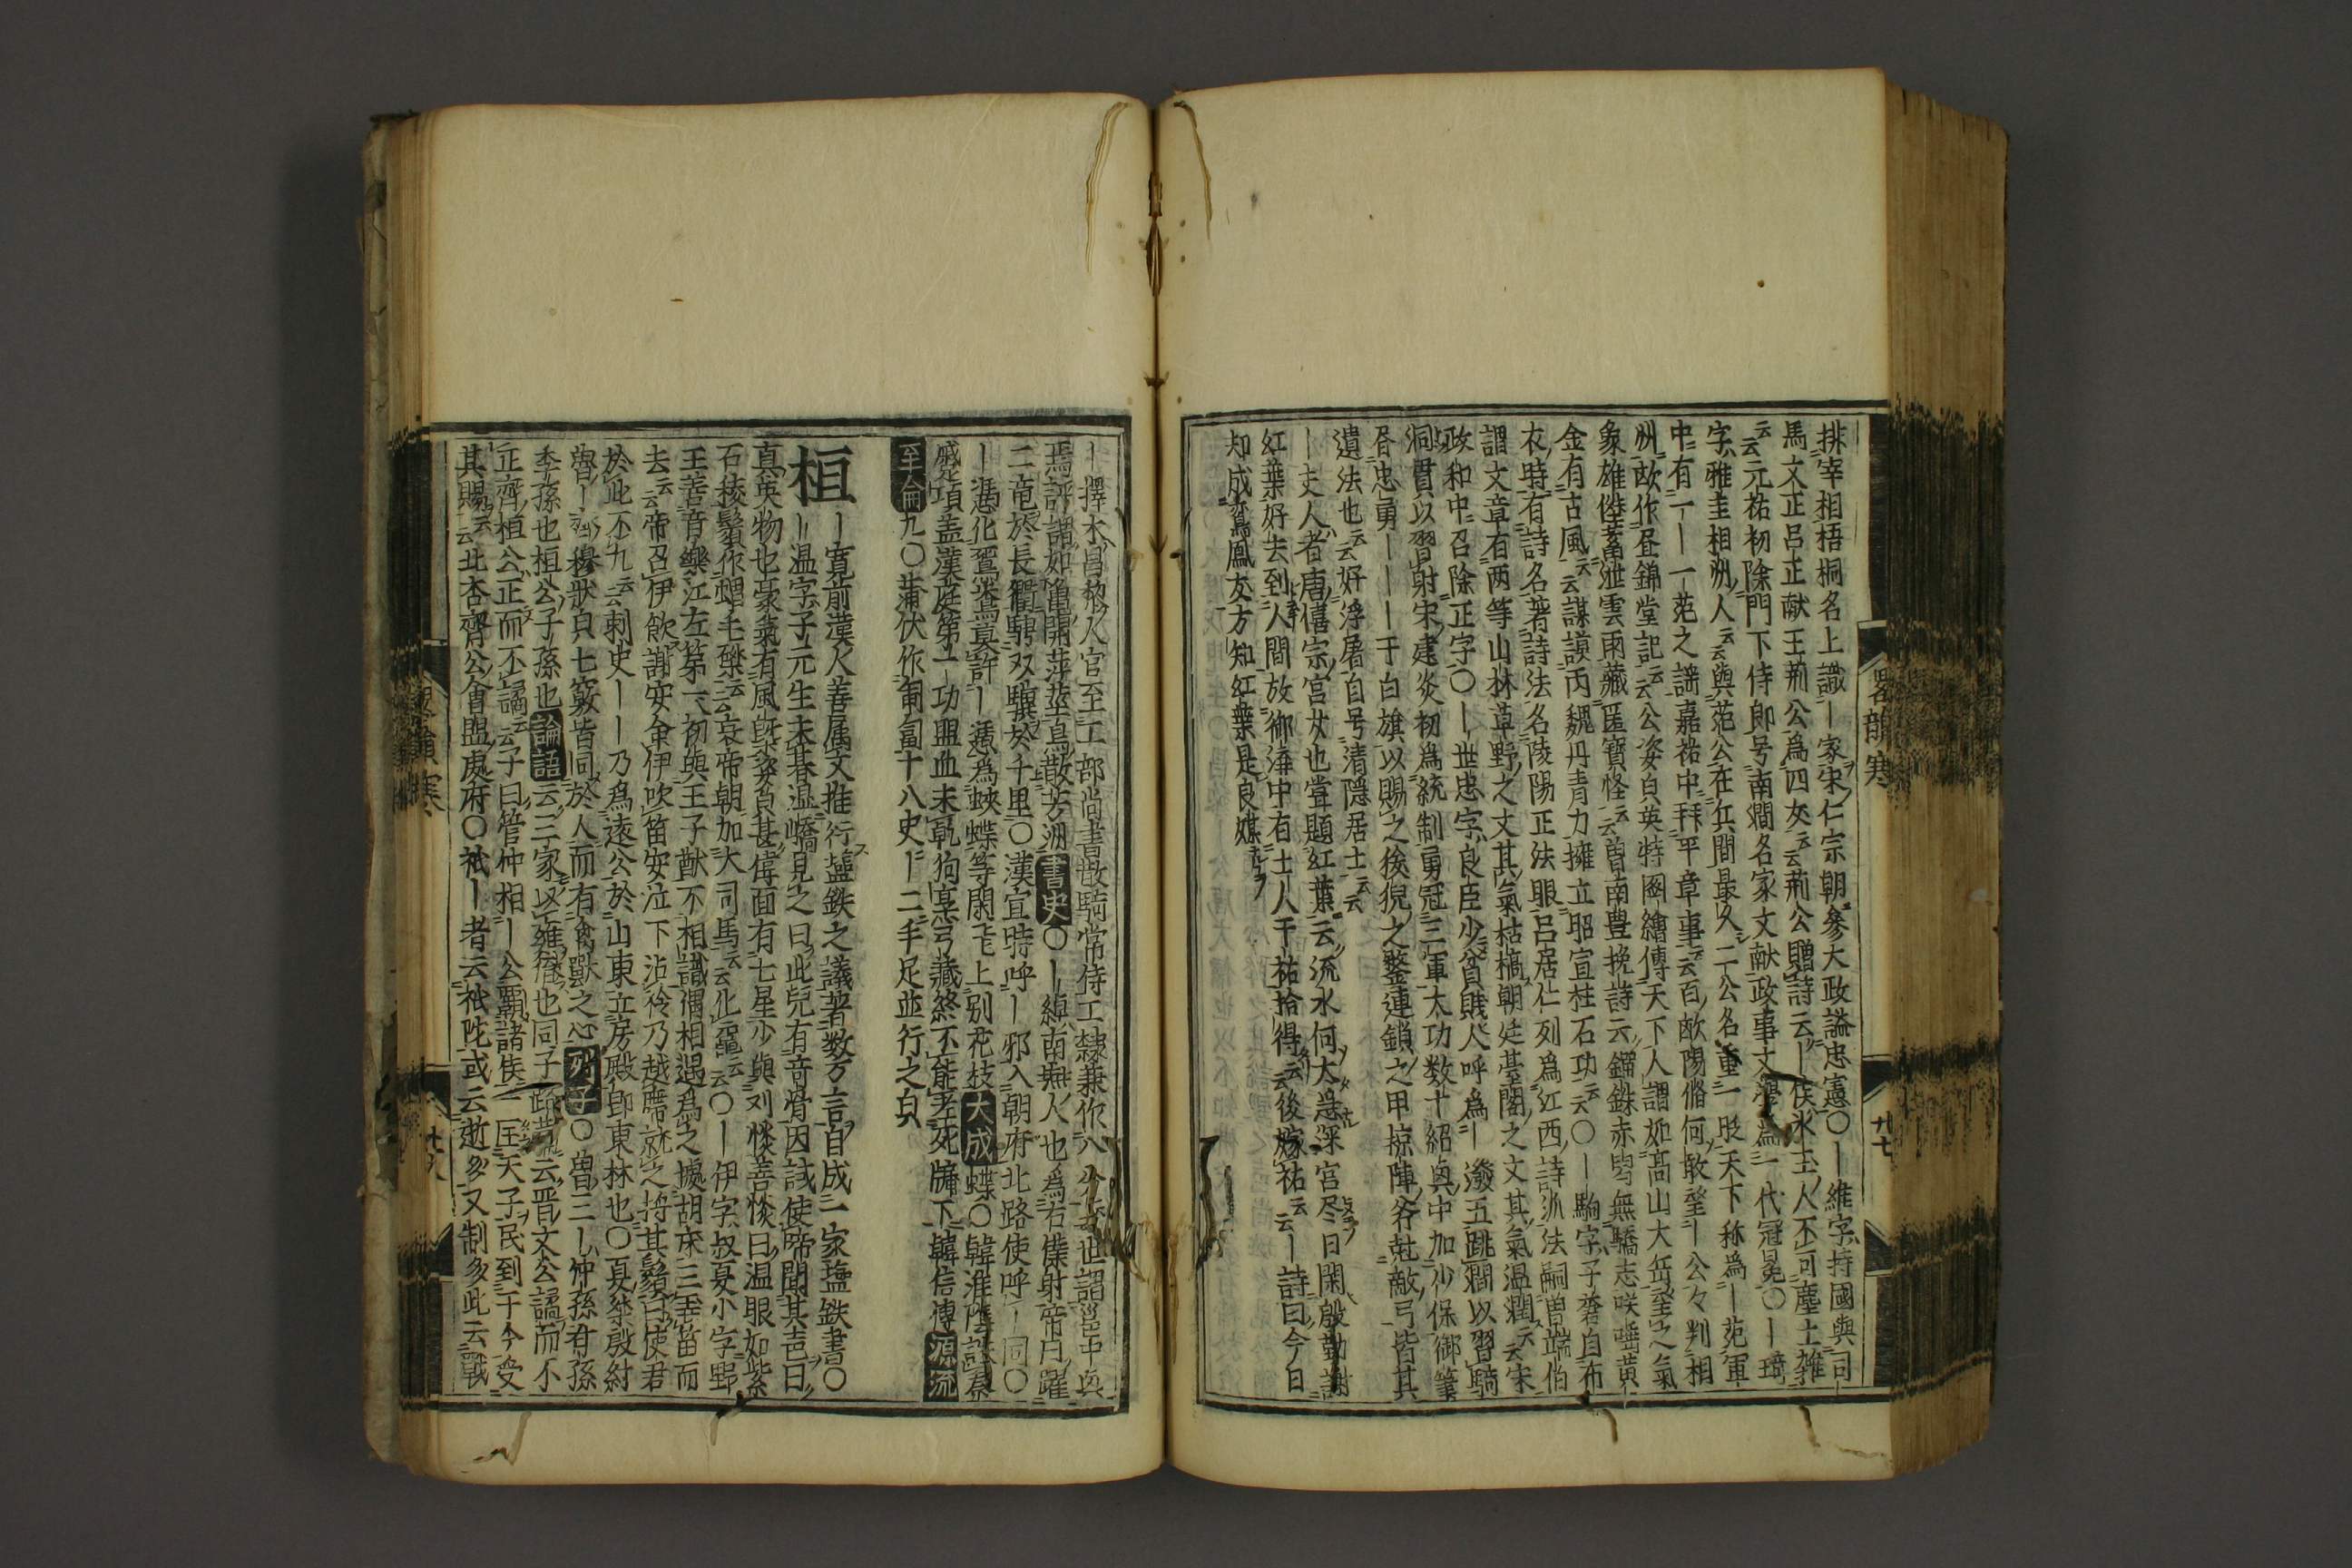 排宰相梧桐名上識｜家宋仁宗朝參大政謚忠憲〇｜維字持國與司｜
馬文正呂正献王荊公為四友云云荊公贈詩云｜侯氷玉人不可塵土雑
云云元祐初除門下侍郎号南澗名家文献政事文為一代冠冕〇｜琦
字雅圭相洲人云云與范公在兵間最久二公名重一時天下称為｜范軍
中有一｜一范之謡嘉祐中拝平章事云云百欧陽脩何敢望｜公々判相
洲欧作昼錦堂記云云公姿皃英特圖繪傳天下人謂如高山大岳望之氣
象雄傑蓄泄雲雨藏匿寶怪云云曽南豊挽詩云鎦銖赤舄無驕志咲唾黄
金有古風云云謀謨丙魏丹青力擁立昭宣柱石功云云〇｜駒字子蒼自布
衣時有詩名著詩法名陵陽正法眼呂居仁列為江西詩派法嗣曽端伯
謂文章有两等山林草野之文其氣枯槁朝廷臺閣之文其氣温潤云云宋
政和中召除正字〇｜世忠字良臣少貧賎人呼為｜潑五跳澗以習騎
洞貫以習射宋建炎初為統制勇冠三軍大功数十紹興中加少保御筆
忠勇｜｜｜｜于白旗以賜之後猊之鍪連鎖之甲掠陣斧敵弓皆其
遺法也云云好浮屠自号清隠居士云云
｜夫人者唐僖宗宮女也甞題紅葉云流水何太急深宮尽日閑殷勤謝
紅葉好去到人間放御溝中有士人于祐拾得云云後嫁祐云云｜詩曰今日
知成鸞鳳友方知紅葉是良媒
｜擇木昌黎人官至工部尚書散騎常侍工隸兼作八分
焉評謂如亀開萍葉鳥散芳洲書史〇｜｜綽南人也為右僕射帝曰躍
二竜於長衢騁双驥於千里〇漢宣時呼｜邪入朝府北路使呼｜同〇
｜憑化鴛鴦冥許｜憑為蛺蝶等閑飛上別花枝大成蝶〇韓淮陰
項盖漢庭第一功盟血未乾狗烹弓藏終不能牢死牖下韓信傳源流
至論九〇蒲伏作匍匐十八史｜二手足並行之皃
桓｜寛前漢人善属文推行塩鉄之議著数万言自成一家塩鉄書〇
｜温字子元生未朞温嶠見之曰此兒有竒骨因試使啼聞其声曰
真英物也豪氣有風槩姿皃甚偉面有七星少與刘惔善惔曰温眼如紫
石稜鬚作蝟毛磔云云哀帝朝加大司馬云云〇｜伊字叔夏小字野
王善音樂江左第一初與王子猷不相識偶相遇為之據胡床三弄笛而
去云云帝召伊飲謝安命伊吹笛安泣下沾衿乃越席就之捋其鬚曰使君
於此不凡云云刺史｜｜乃為遠公於山東立房殿即東林也〇夏桀殷紂
魯｜楚穆狀皃七竅皆同於人而有禽獸之心列子〇曽三｜仲孫叔孫
季孫也桓公子孫也論語云三家以雍徹也同子云晋文公譎而不
正齊桓公正而不譎云云子曰管仲相｜公覇諸侯一匡天子民到于今受
其賜云云北杏齊公會盟處府〇祇｜者云